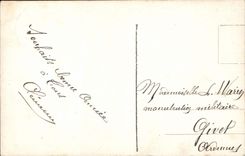 Souhaits bonne année
à tous
Mademoiselle L. Wary
manutention militaire
Givet
Ardennes